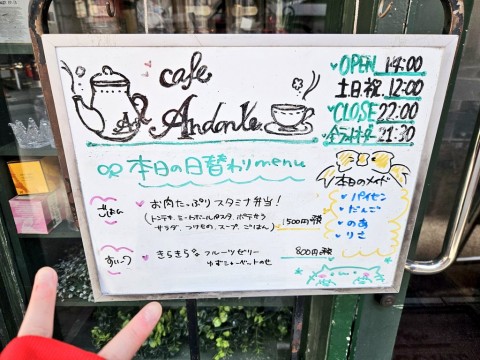 cafe
Andante
OPEN 14:00
土日.祝. 12:00
CLOSE 22:00
全ラストオーダー 21:30
本日の日替わりmenu
ごはん
お肉たっぷりスタミナ弁当！
(トンテキ、ミートボールパスタ、ポテサラ
サラダ、つけもの、スープ、ごはん)
1500円
すいーつ
きらきら フルーツゼリー
ゆずシャーベットのせ
800円
本日のメイド
パイセン
だんご
のあ
りさ